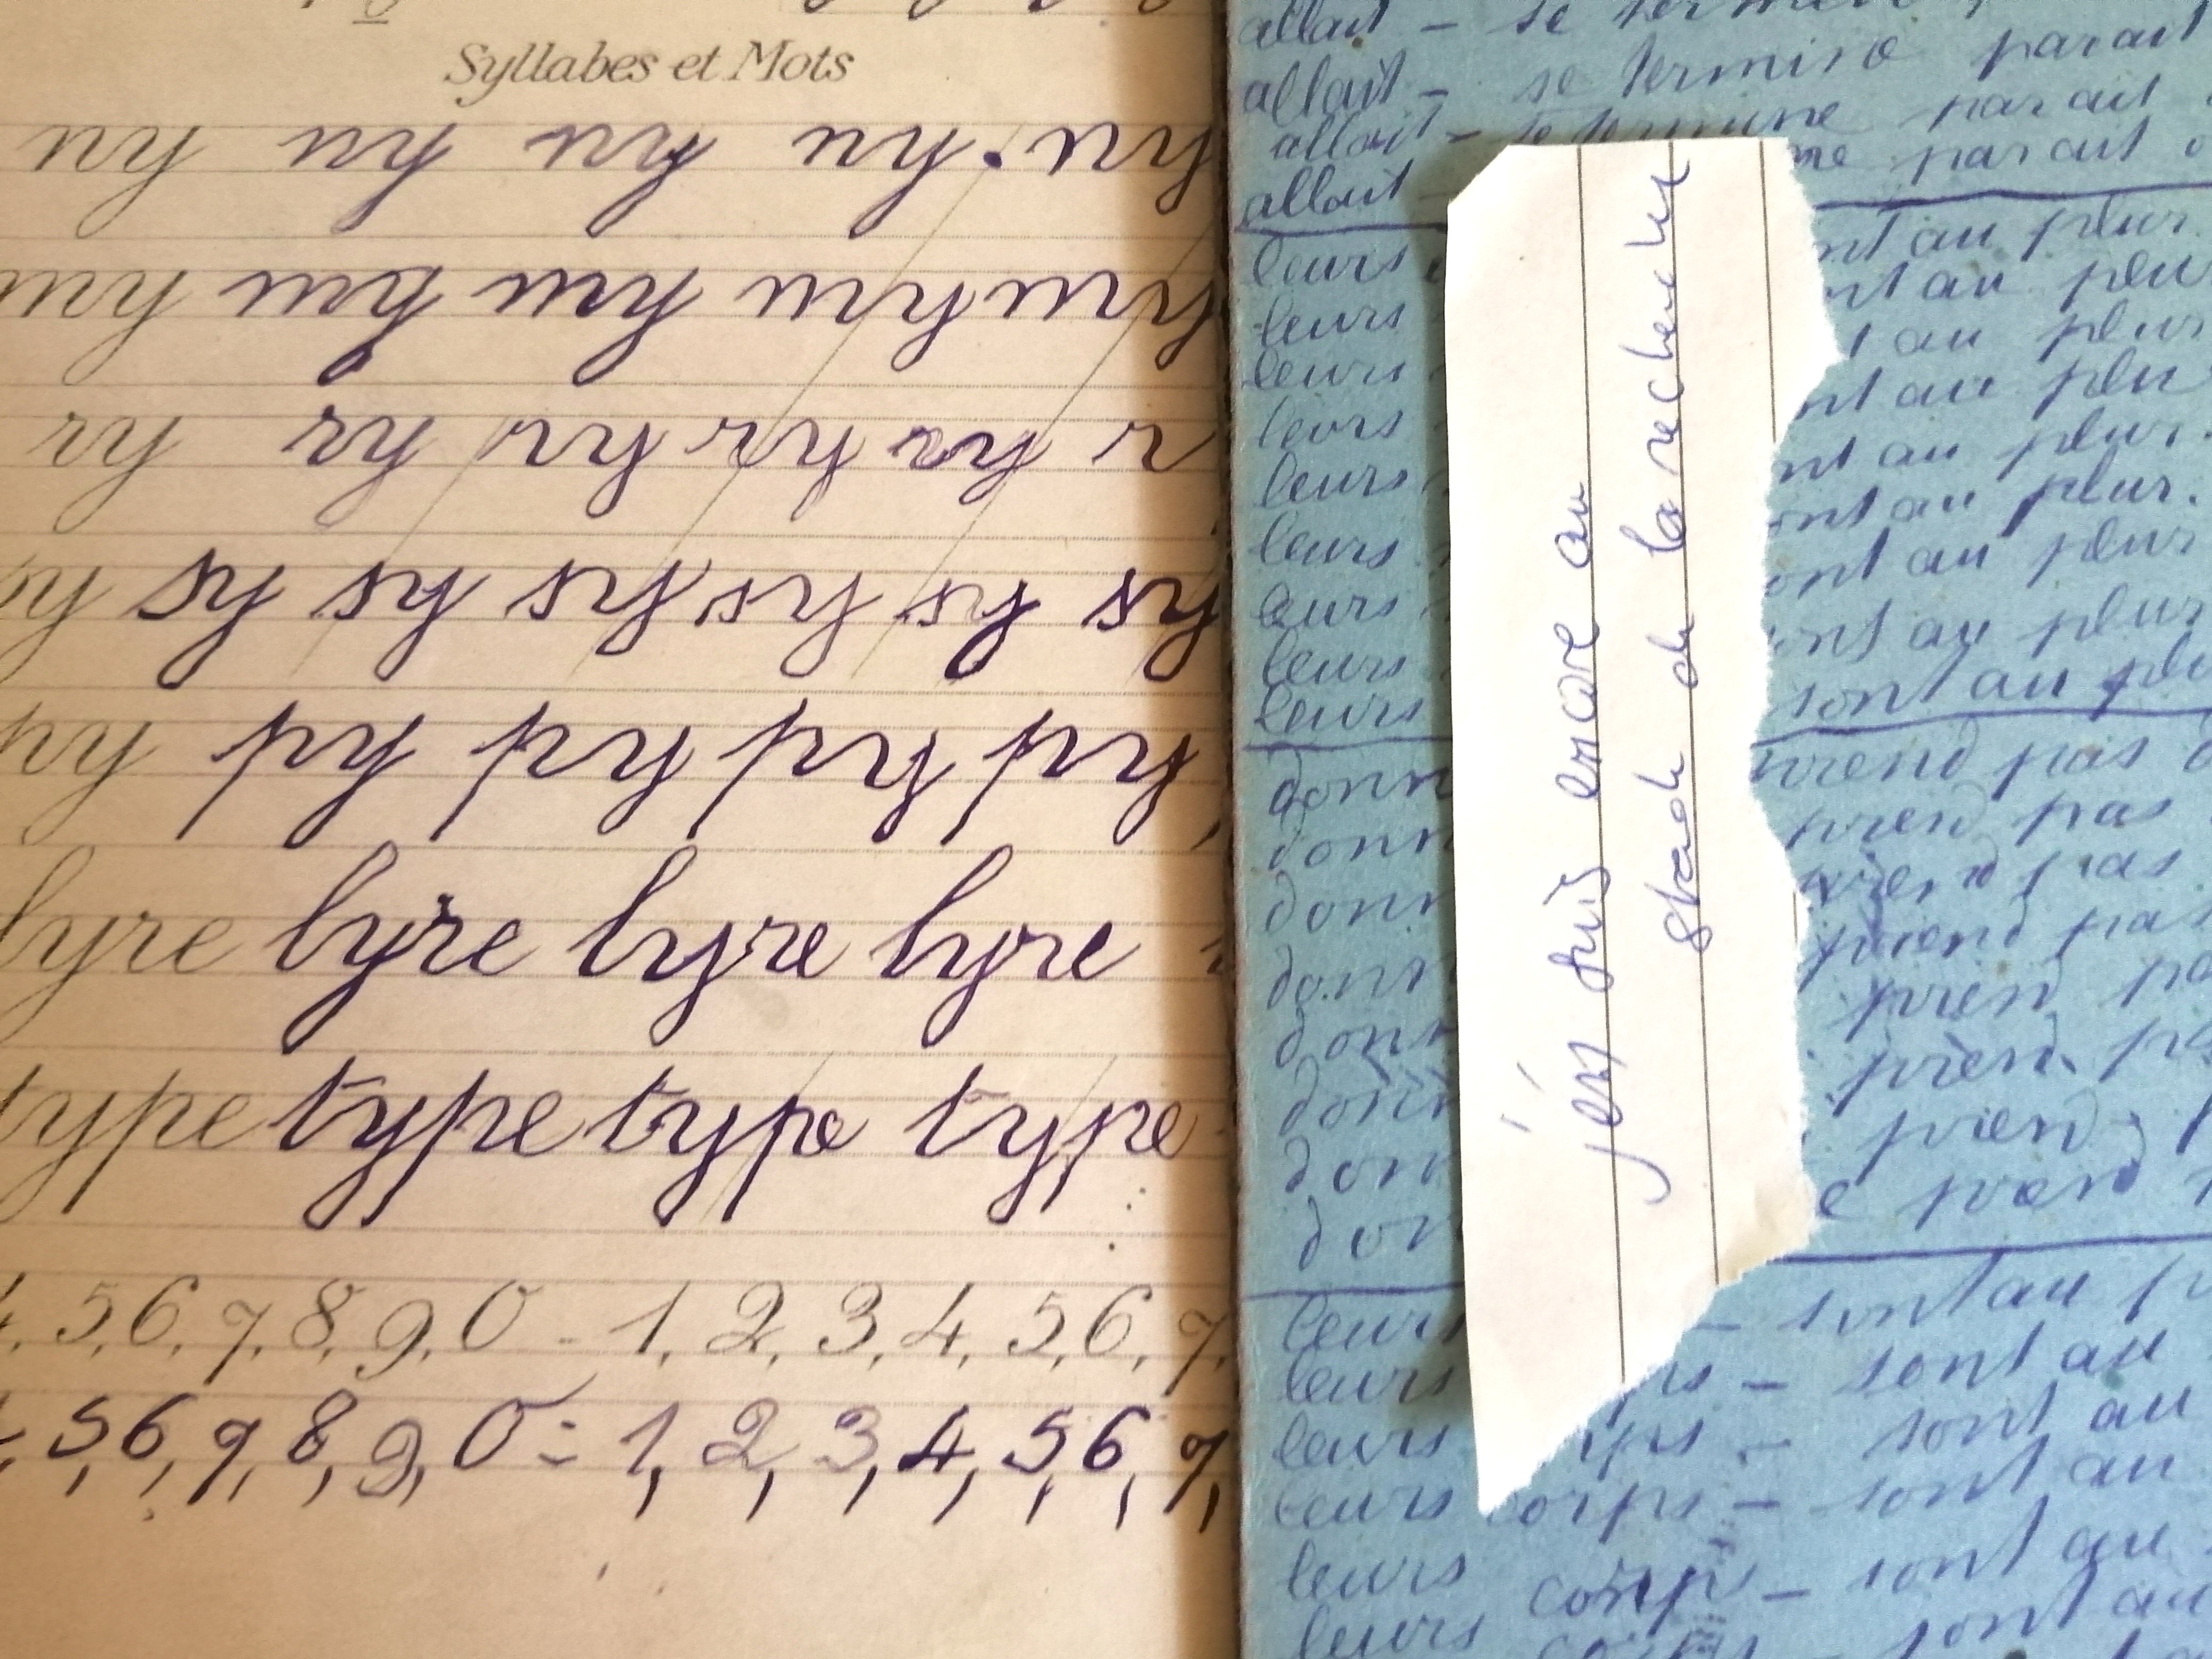 Syllabes et Mots
ny ny ny ny. ny
my my my my my
ry ry ry ry ry r
sy sy sy sy sy sy sy
py py py py py
lyre lyre lyre lyre
type type type type
4, 5, 6, 7, 8, 9, 0 - 1, 2, 3, 4, 5, 6, 7,
4, 5, 6, 7, 8, 9, 0 - 1, 2, 3, 4, 5, 6, 7,
allait - se
allait - se termine parait
allait - se termine parait
allait parait
leurs nt au plur
leurs nt au plu
leurs au plur
leurs nt au plu
leurs nt au plur.
leurs ont au plur.
leurs ont au plur
leurs ont au plur
leurs sont au plu
donn prend pas d
donn prend pas
donn prend pas
donn prend pas
donn prend pa
donn prend pa
don prend p
don prend
leurs - sont au p
leurs ps - sont au
leurs rps - sont au
leurs corps - sont au
leurs corps - sont au
leurs corps - sont au
j'en suis encore au
stade de la recherche